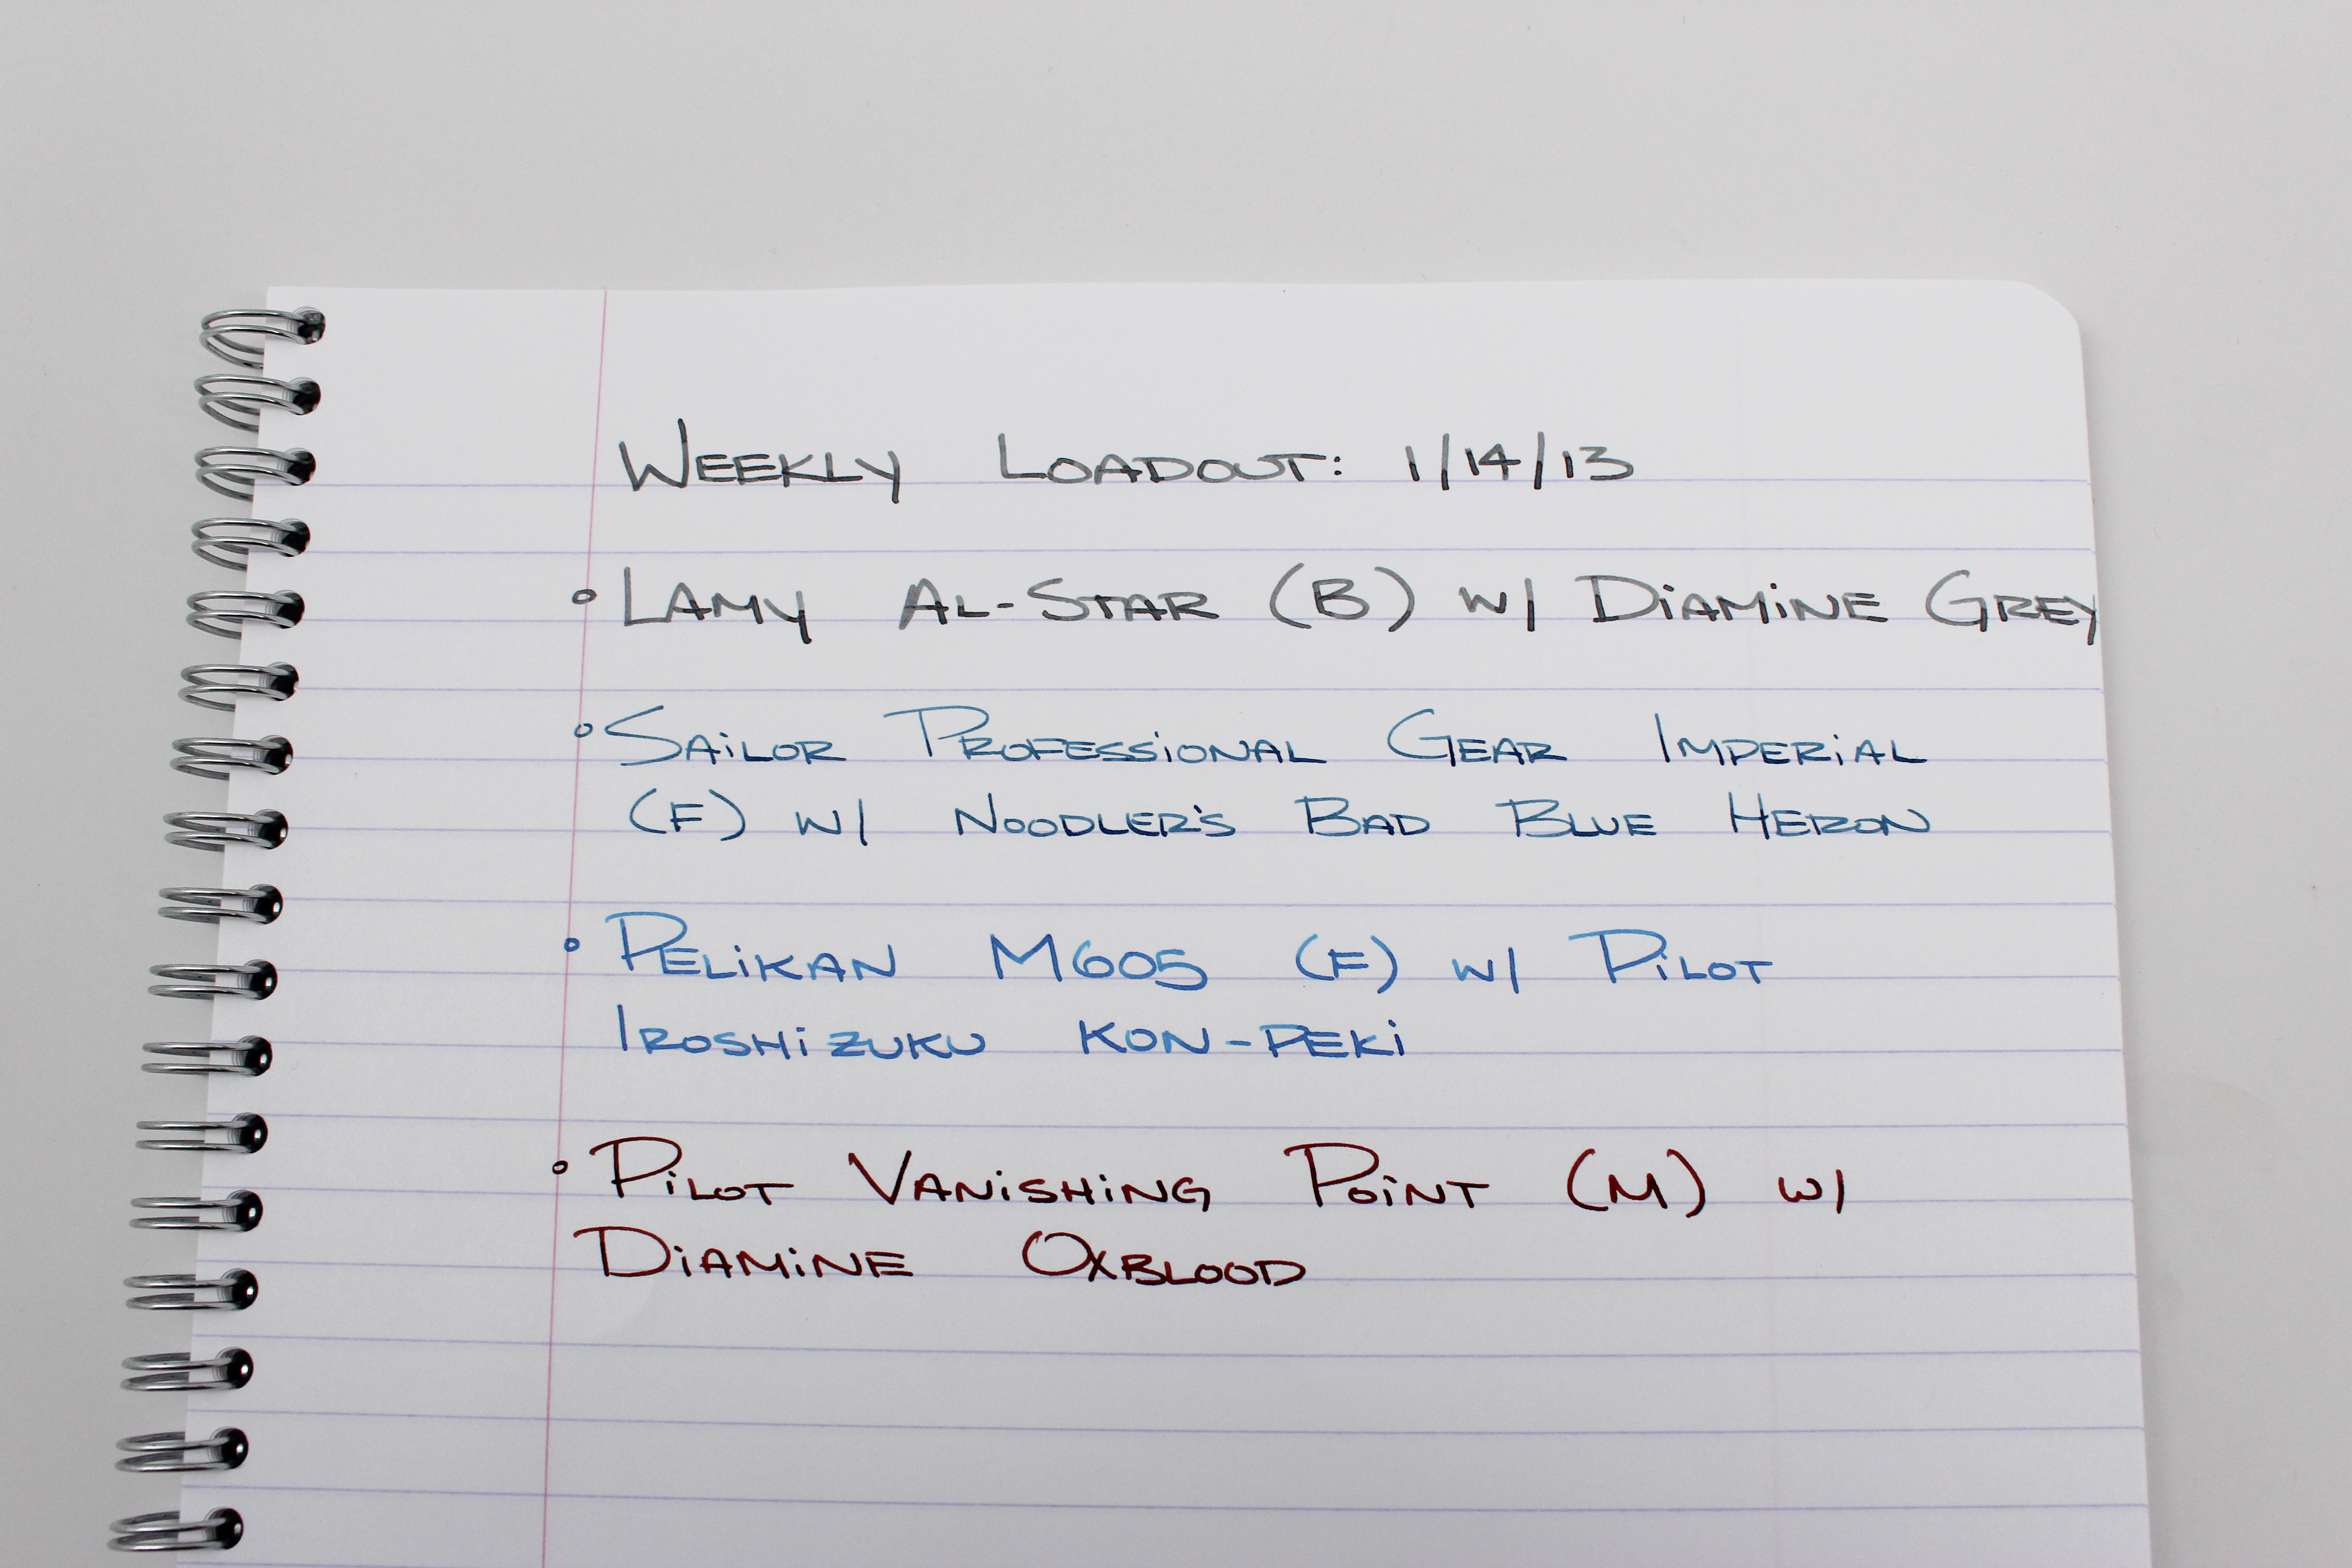 Weekly Loadout: 1/14/13
° Lamy Al-Star (B) w/ Diamine Grey
° Sailor Professional Gear Imperial
(F) w/ Noodler's Bad Blue Heron
° Pelikan M605 (F) w/ Pilot
Iroshizuku kon-peki
° Pilot Vanishing Point (M) w/
Diamine Oxblood